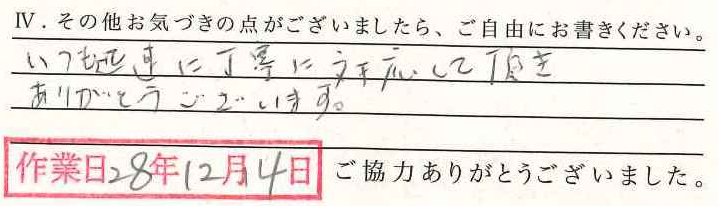 Ⅳ．その他お気づきの点がございましたら、ご自由にお書きください。
いつも迅速に丁寧に対応して頂き
ありがとうございます。
作業日28年12月4日 ご協力ありがとうございました。